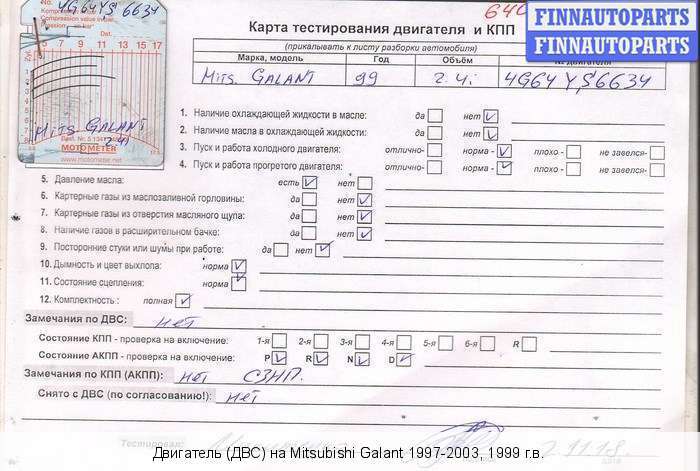 4G64YS 6634
Kompressionswert in bar
Compression value in bar
Zyl. No.
Dat.
5 7 9 11 13 15 17
Mits. GALANT
2.4i
MOTOMETER
www.motometer.net
640
FINNAUTOPARTS
FINNAUTOPARTS
Карта тестирования двигателя и КПП
(прикалывать к листу разборки автомобиля)
Марка, модель Год Объём № двигателя
Mits. GALANT 99 2.4i 4G64 YS6634
1. Наличие охлаждающей жидкости в масле: да нет
2. Наличие масла в охлаждающей жидкости: да нет
3. Пуск и работа холодного двигателя: отлично- норма - плохо - не завелся-
4. Пуск и работа прогретого двигателя: отлично- норма - плохо - не завелся-
5. Давление масла: есть нет
6. Картерные газы из маслозаливной горловины: да нет
7. Картерные газы из отверстия масляного щупа: да нет
8. Наличие газов в расширительном бачке: да нет
9. Посторонние стуки или шумы при работе: да нет
10. Дымность и цвет выхлопа: норма
11. Состояние сцепления: норма
12. Комплектность : полная
Замечания по ДВС: нет
Состояние КПП - проверка на включение: 1-я 2-я 3-я 4-я 5-я 6-я R
Состояние АКПП - проверка на включение: P R N D
Замечания по КПП (АКПП): нет СЗНП.
Снято с ДВС (по согласованию!): нет
Тестировал: 2.11.18
Двигатель (ДВС) на Mitsubishi Galant 1997-2003, 1999 г.в.